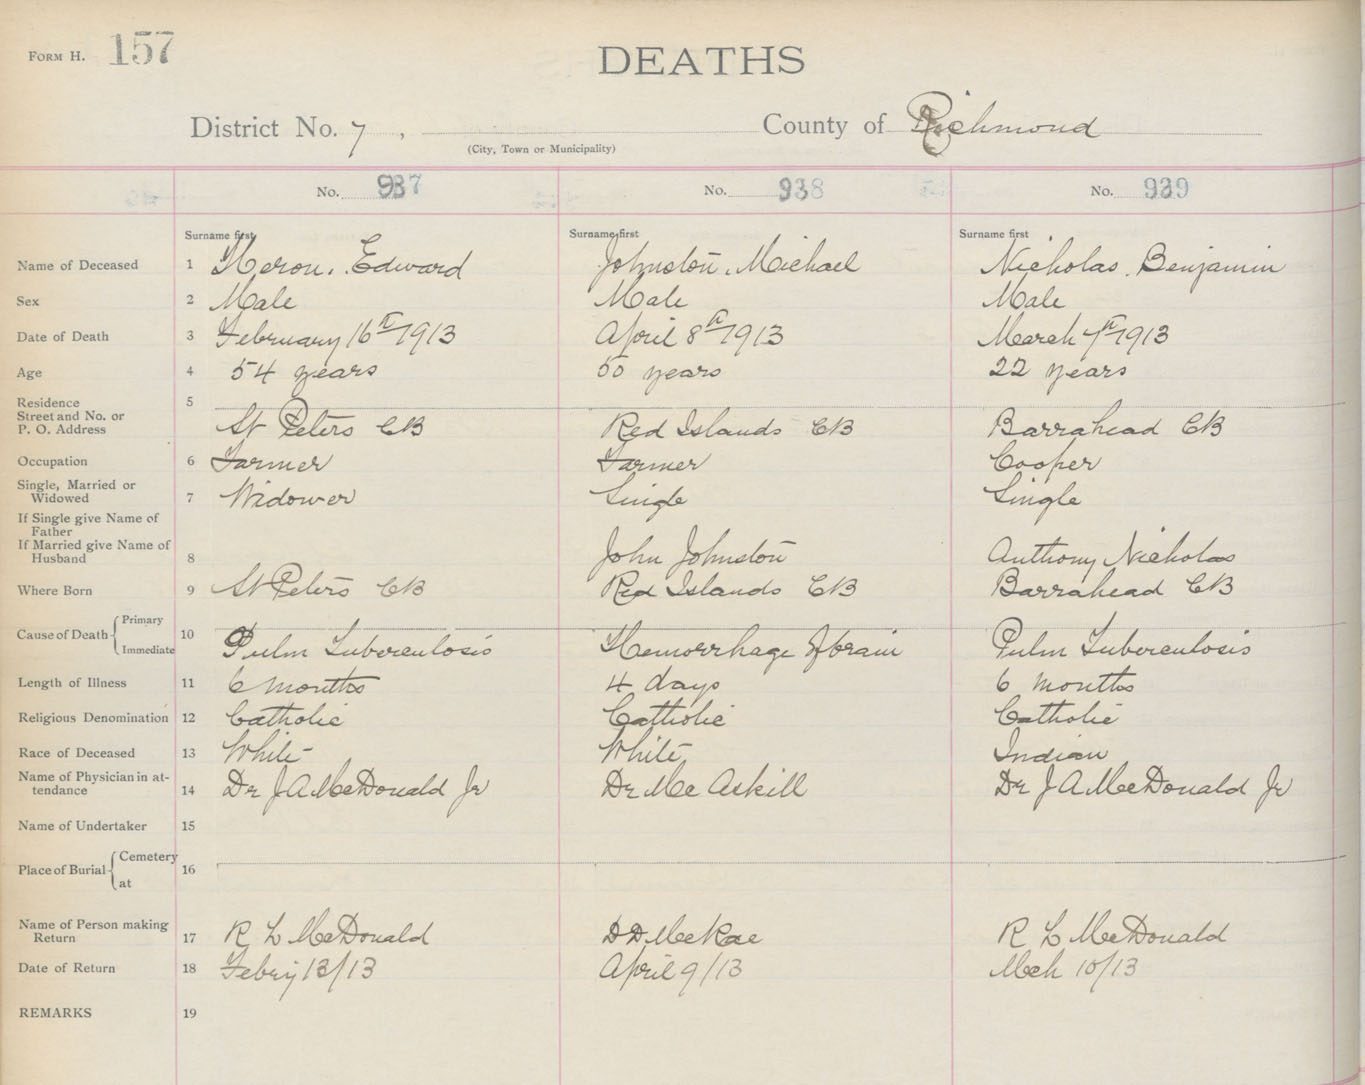 FORM H. 157
DEATHS
District No. 7, County of Richmond
(City, Town or Municipality)
No. 937 No. 938 No. 939
Surname first Surname first Surname first
Name of Deceased 1 Heron, Edward Johnston, Michael Nicholas, Benjamin
Sex 2 Male Male Male
Date of Death 3 February 16th 1913 April 8th 1913 March 7th 1913
Age 4 54 years 50 years 22 years
Residence 5
Street and No. or
P. O. Address St Peters CB Red Islands CB Barrahead CB
Occupation 6 Farmer Farmer Cooper
Single, Married or
Widowed 7 Widower Single Single
If Single give Name of
Father
If Married give Name of
Husband 8 John Johnston Anthony Nicholas
Where Born 9 St Peters CB Red Islands CB Barrahead CB
Cause of Death Primary 10
Immediate Pulm Tuberculosis Hemorrhage of brain Pulm Tuberculosis
Length of Illness 11 6 months 4 days 6 months
Religious Denomination 12 Catholic Catholic Catholic
Race of Deceased 13 White White Indian
Name of Physician in at-
tendance 14 Dr J A McDonald Jr Dr McAskill Dr J A McDonald Jr
Name of Undertaker 15
Place of Burial Cemetery 16
at
Name of Person making
Return 17 R L McDonald D D McRae R L McDonald
Date of Return 18 Febry 13/13 April 9/13 Mch 10/13
REMARKS 19